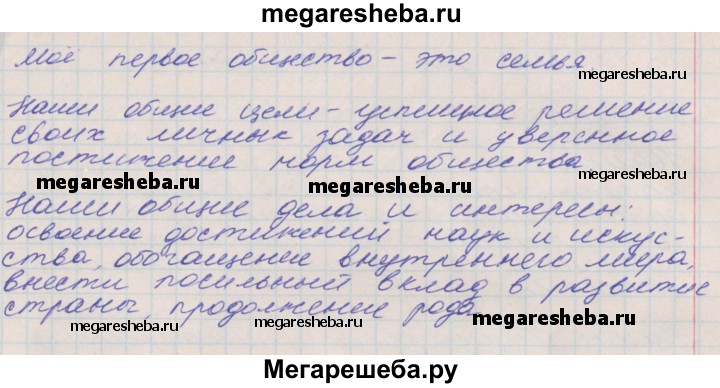 megaresheba.ru
Моё первое общество – это семья
megaresheba.ru
Наши общие цели – успешное решение
своих личных задач и уверенное
постижение норм общества
megaresheba.ru megaresheba.ru megaresheba.ru
Наши общие дела и интересы:
освоение достижений наук и искус-
ства, обогащение внутреннего мира,
внести посильный вклад в развитие
страны, продолжение рода
megaresheba.ru megaresheba.ru megaresheba.ru
Мегарешеба.ру